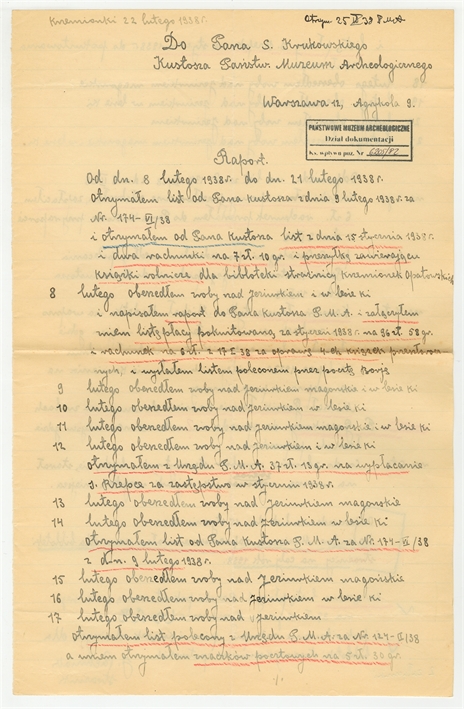 Krzemionki 22 lutego 1938 r.
Otrzym 25 II 38 P.M.A
Do Pana S. Krukowskiego
Kustosza Państw. Muzeum Archeologicznego
Warszawa 12, Agrykola 9.
PAŃSTWOWE MUZEUM ARCHEOLOGICZNE
Dział dokumentacji
Ks. wpływu poz. Nr
Raport.
Od dn. 8 lutego 1938 r. do dn. 21 lutego 1938 r.
otrzymałem list od Pana Kustosza z dnia 9 lutego 1938 r. za
Nr. 174-VI/38
i otrzymałem od Pana Kustosza list z dnia 15 stycznia 1938 r.
i dwa rachunki na 7 zł. 10 gr. i przesyłkę zawierającą
książki rolnicze dla bibljoteki strażnicy Krzemionek Opatowskich
8 lutego obszedłem zroby nad Jeziorkiem i w lesie Ki
i napisałem raport do Pana Kustosza P.M.A. i załączyłem
w niem listę płacy pokwitowaną za styczeń 1938 r. na 96 zł. 58 gr.
i rachunek na 6 zł. z 17 I 38 za oprawę 4-ch książek
i wysłałem listem poleconem przez pocztę
9 lutego obszedłem zroby nad Jeziorkiem magońskie i w lesie Ki
10 lutego obszedłem zroby nad Jeziorkiem i w lesie Ki
11 lutego obszedłem zroby nad Jeziorkiem magońskie i w lesie Ki
12 lutego obszedłem zroby nad Jeziorkiem i w lesie Ki
otrzymałem z Urzędu P.M.A. 37 zł. 13 gr. na wypłacanie
S. Rzepca za zastępstwo w styczniu 1938 r.
13 lutego obszedłem zroby nad Jeziorkiem magońskie
14 lutego obszedłem zroby nad Jeziorkiem w lesie Ki
otrzymałem list od Pana Kustosza P.M.A. za Nr. 174-VI/38
z dn. 9 lutego 1938 r.
15 lutego obszedłem zroby nad Jeziorkiem magońskie
16 lutego obszedłem zroby nad Jeziorkiem w lesie Ki
17 lutego obszedłem zroby nad Jeziorkiem
otrzymałem list polecony z Urzędu P.M.A. za Nr 127-II/38
a w niem otrzymałem znaczków pocztowych na 5 zł. 30 gr.